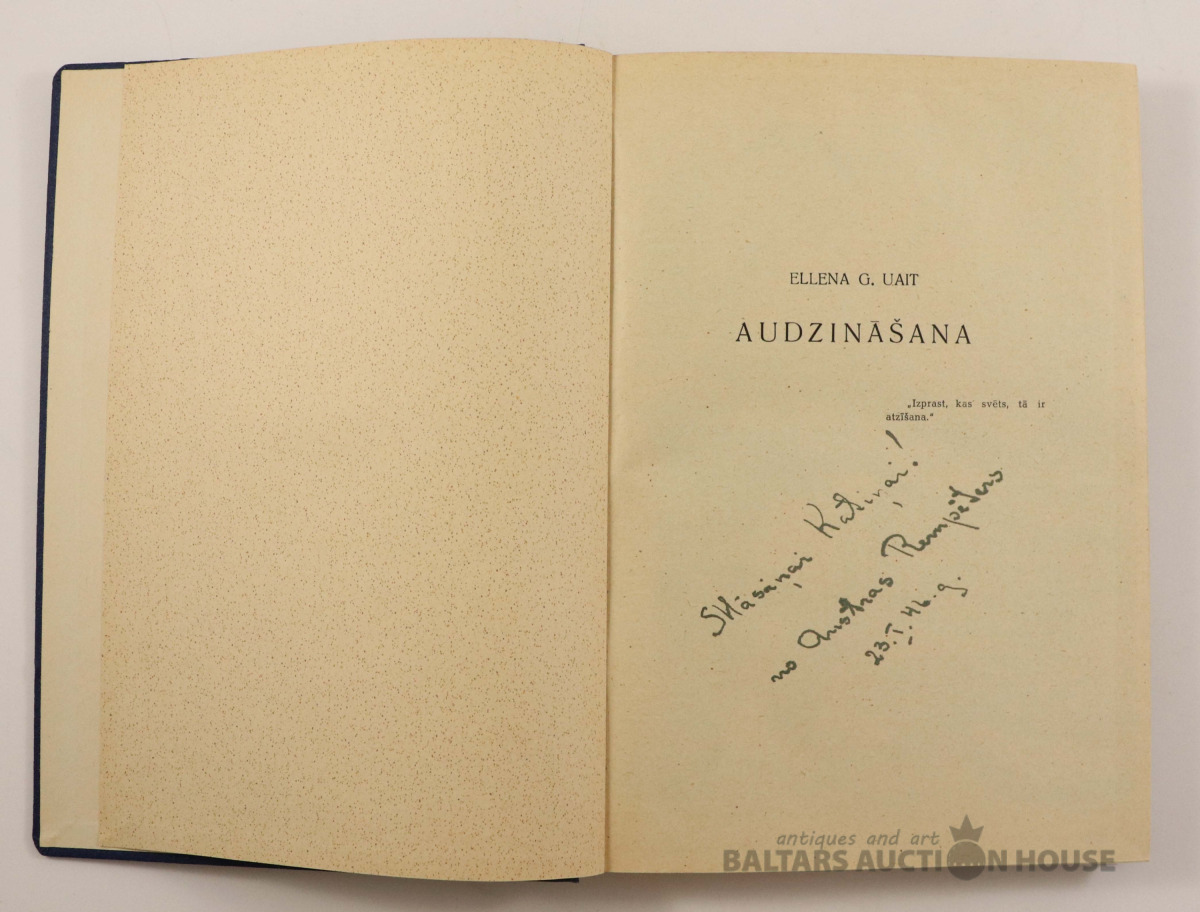 ELLENA G. UAIT
AUDZINĀŠANA
„Izprast, kas svēts, tā ir
atzīšana.“
Māsiņai Katiņai!
no Austras Rempēters
23. I. 46. g.
antiques and art
BALTARS AUCTION HOUSE